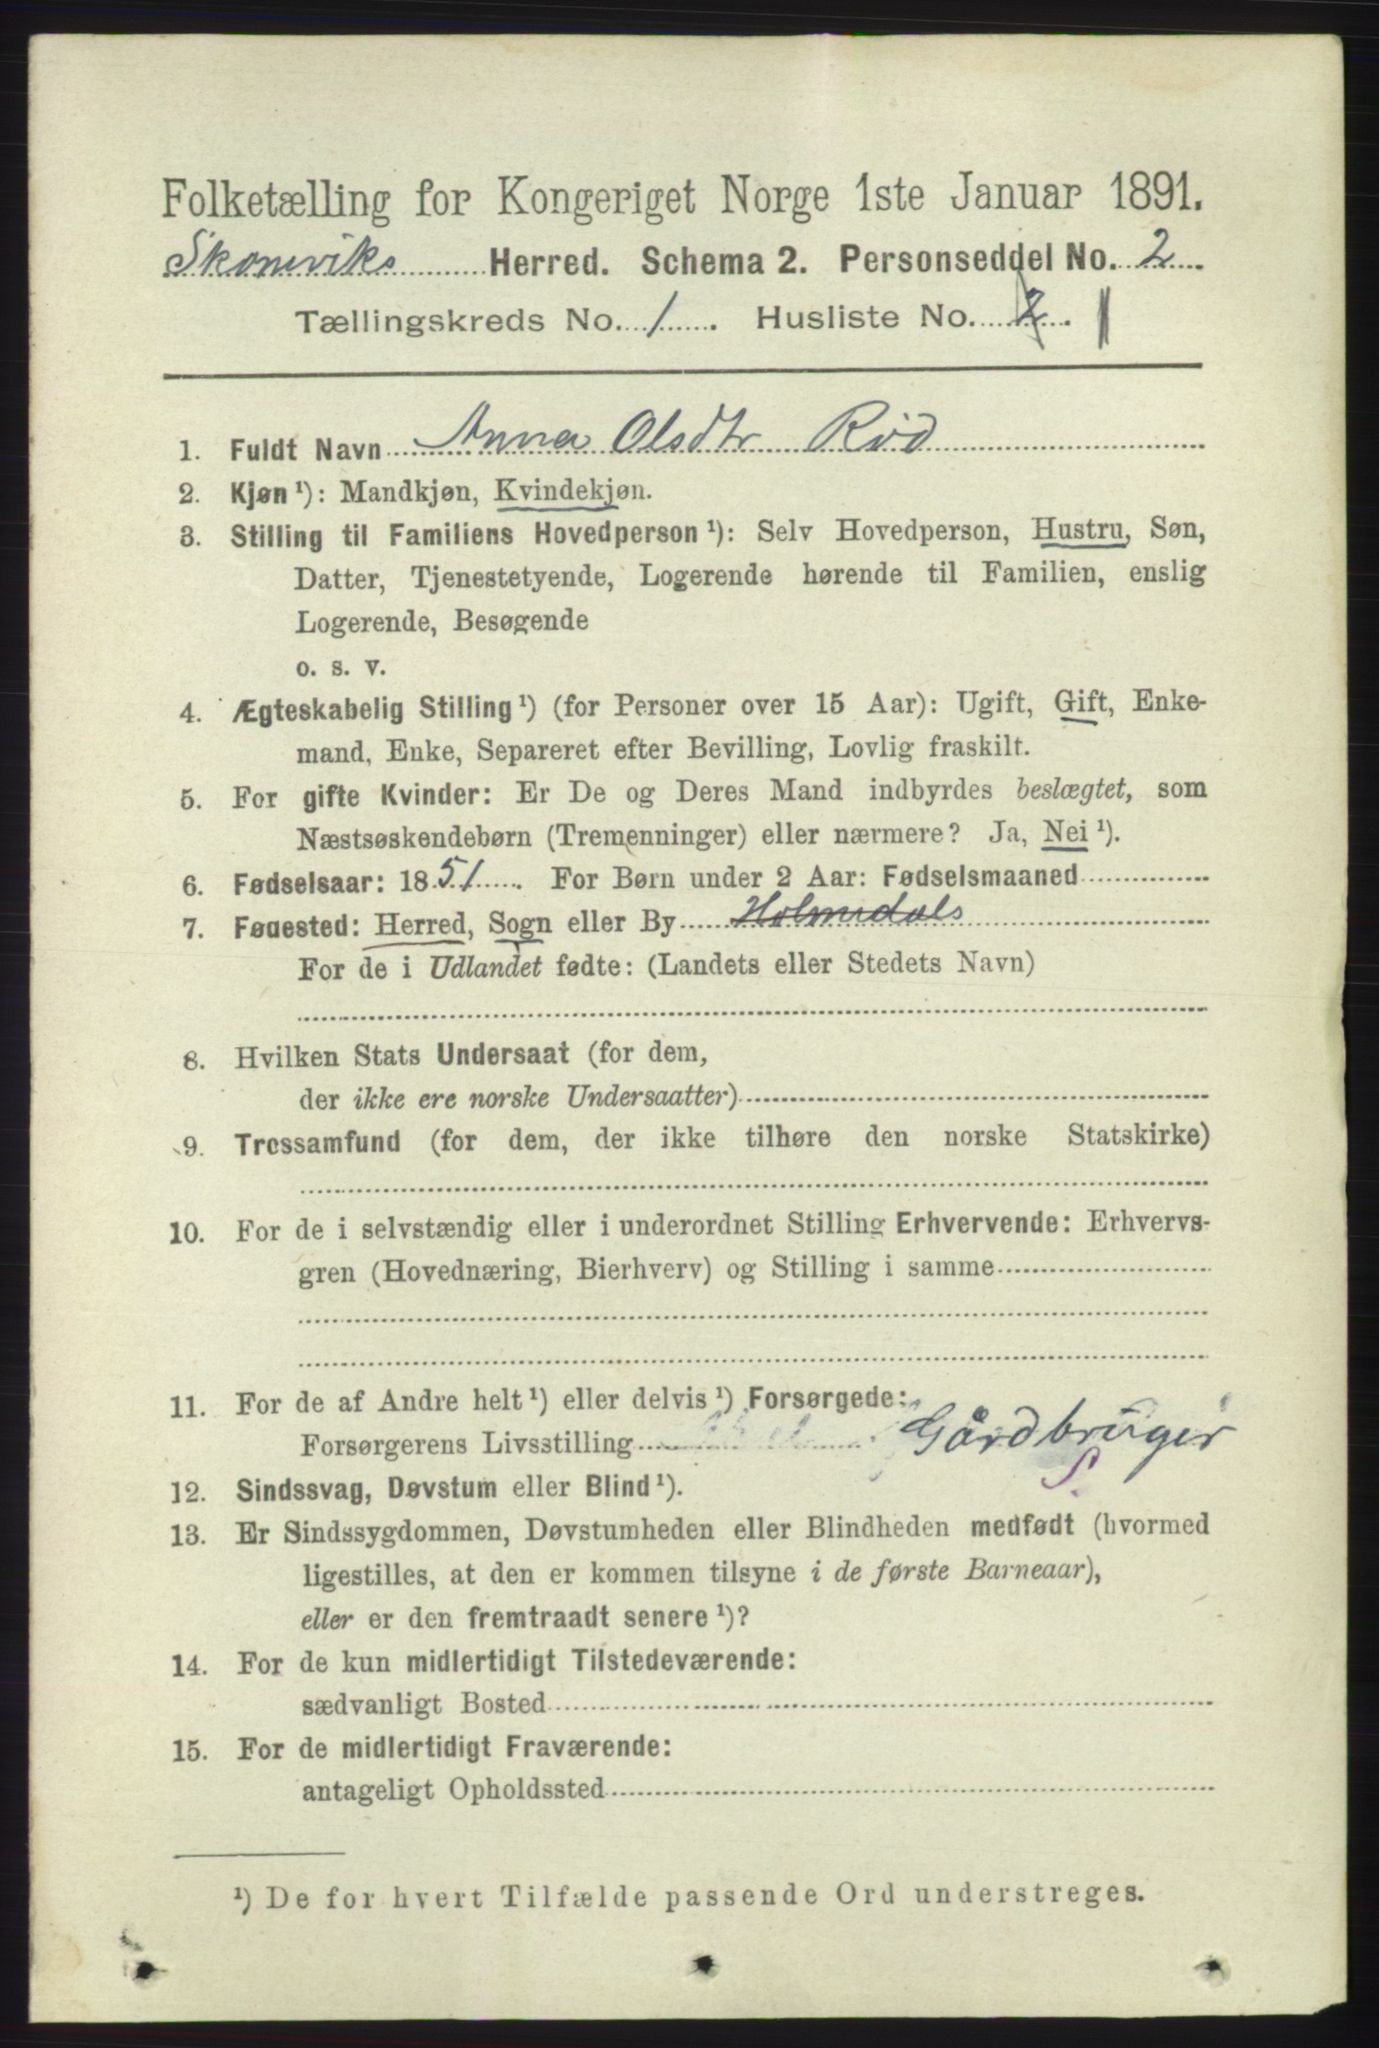 Folketælling for Kongeriget Norge 1ste Januar 1891.
Skoneviks Herred. Schema 2. Personseddel No. 2
Tællingskreds No. 1. Husliste No. 2. 1
1. Fuldt Navn Anna Olsdtr Röd
2. Kjøn ¹): Mandkjøn, Kvindekjøn.
3. Stilling til Familiens Hovedperson ¹): Selv Hovedperson, Hustru, Søn,
Datter, Tjenestetyende, Logerende hørende til Familien, enslig
Logerende, Besøgende
o. s. v.
4. Ægteskabelig Stilling ¹) (for Personer over 15 Aar): Ugift, Gift, Enke-
mand, Enke, Separeret efter Bevilling, Lovlig fraskilt.
5. For gifte Kvinder: Er De og Deres Mand indbyrdes beslægtet, som
Næstsøskendebørn (Tremenninger) eller nærmere? Ja, Nei ¹).
6. Fødselsaar: 1851. For Børn under 2 Aar: Fødselsmaaned
7. Føaested: Herred, Sogn eller By Holmedals
For de i Udlandet fødte: (Landets eller Stedets Navn)
8. Hvilken Stats Undersaat (for dem,
der ikke ere norske Undersaatter)
9. Trossamfund (for dem, der ikke tilhøre den norske Statskirke)
10. For de i selvstændig eller i underordnet Stilling Erhvervende: Erhvervs-
gren (Hovednæring, Bierhverv) og Stilling i samme
11. For de af Andre helt ¹) eller delvis ¹) Forsørgede:
Forsørgerens Livsstilling Gårdbruger
S.
12. Sindssvag, Døvstum eller Blind ¹).
13. Er Sindssygdommen, Døvstumheden eller Blindheden medfødt (hvormed
ligestilles, at den er kommen tilsyne i de første Barneaar),
eller er den fremtraadt senere ¹)?
14. For de kun midlertidigt Tilstedeværende:
sædvanligt Bosted
15. For de midlertidigt Fraværende:
antageligt Opholdssted
¹) De for hvert Tilfælde passende Ord understreges.